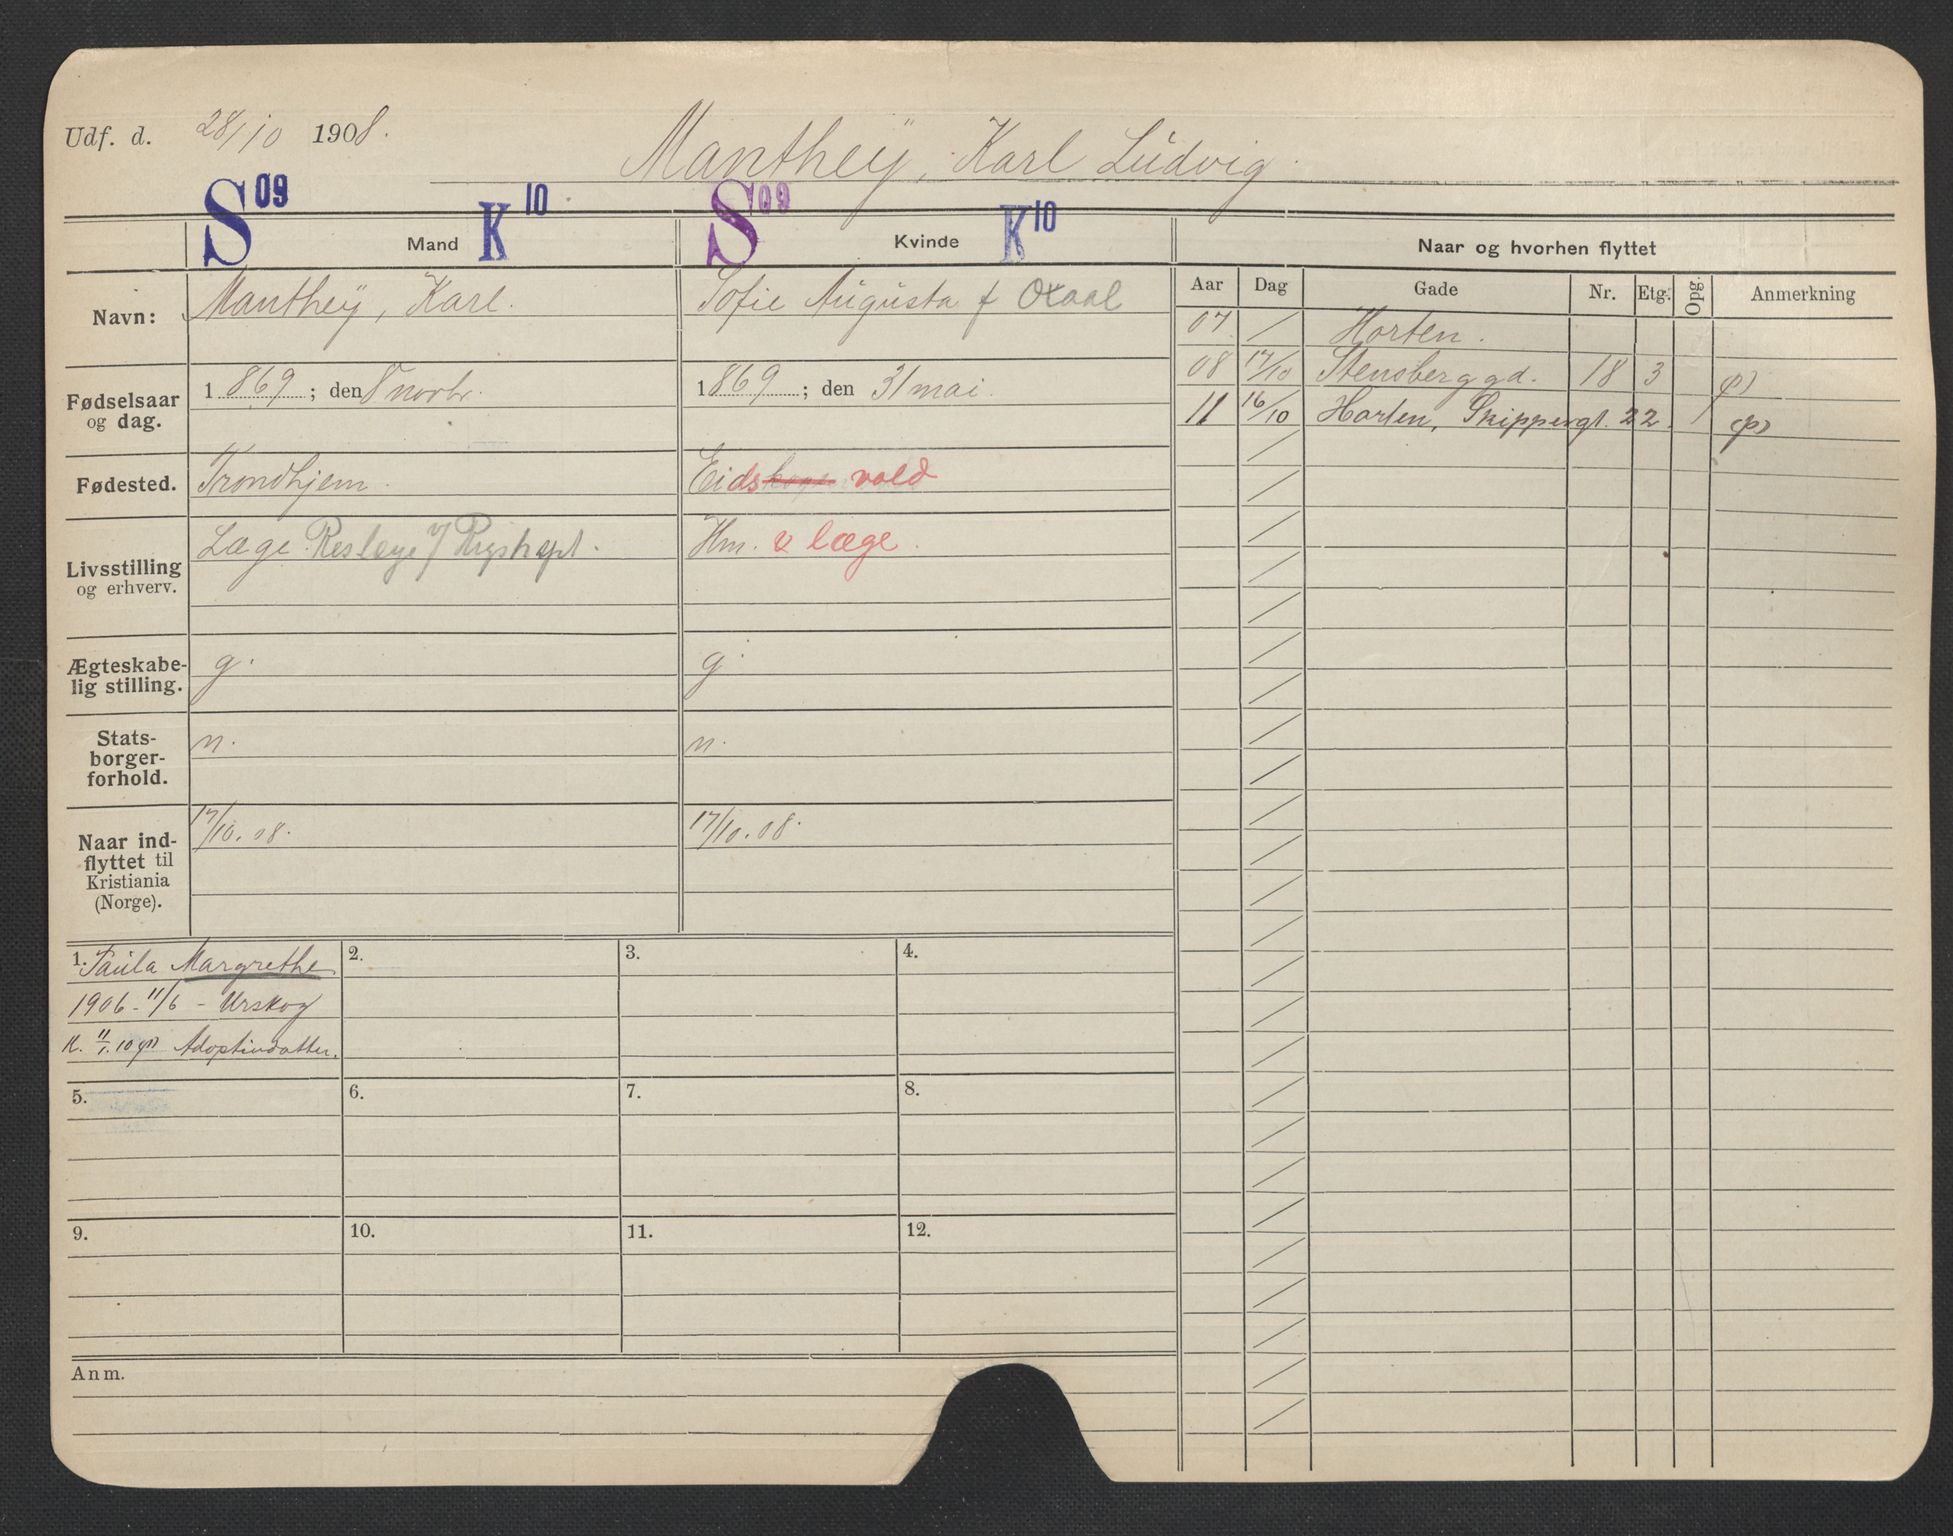 Udf. d. 28/10 1908.
Manthey, Karl Ludvig.
S 09 K 10 S 09 K 10
Mand Kvinde Naar og hvorhen flyttet
Navn: Manthey, Karl. Sofie Augusta f Oxaal
Fødselsaar og dag. 1869; den 8 novbr. 1869; den 31 mai.
Fødested. Trondhjem. Eids vold
Livsstilling og erhverv. Læge Reslæge v/ Rigshspt. Hm. læge.
Ægteskabe-
lig stilling. g. g.
Stats-
borger-
forhold. n. n.
Naar ind-
flyttet til
Kristiania
(Norge). 17/10.08. 17/10.08.
Aar Dag Gade Nr. Etg. Opg. Anmerkning
07 / Horten.
08 17/10 Stensberggd. 18 3
11 16/10 Horten, Skippergt. 22.
1. Paula Margrethe
1906 - 11/6 - Urskog
K. 11/1.10 Adoptivdatter.
2.
3.
4.
5.
6.
7.
8.
9.
10.
11.
12.
Anm.